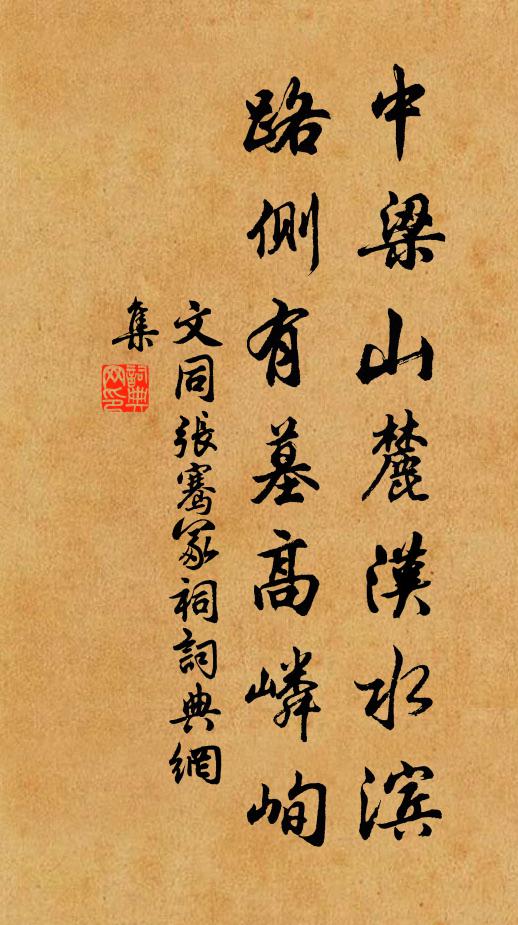 中梁山麓漢水滨
路側有墓高嶙峋
文同張騫冢祠詞典網
集
詞典
网印